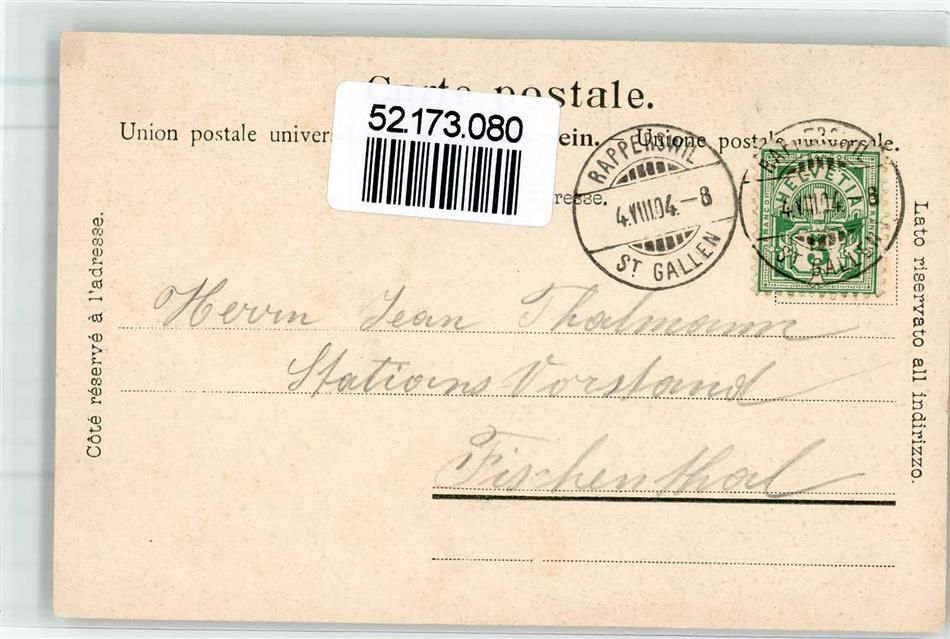 Carte postale.
52.173.080
Union postale univers ein. Unione postale universale.
resse.
RAPPERSWIL
4.VIII.04.-8
ST GALLEN
RAPPERSWIL
4.VIII.04. 8
ST GALLEN
HELVETIA
FRANCO
FRANCO
5
Côté réservé à l'adresse.
Lato riservato all indirizzo.
Herrn Jean Thalmann
Stations Vorstand
Fischenthal